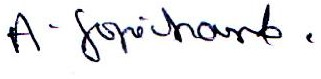 A. Gopichand.